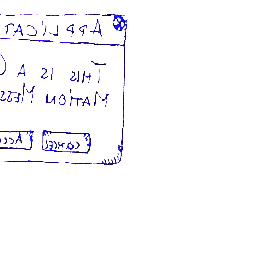 APPLICAT
THIS IS A
MATION MESS
CANCEL ACC